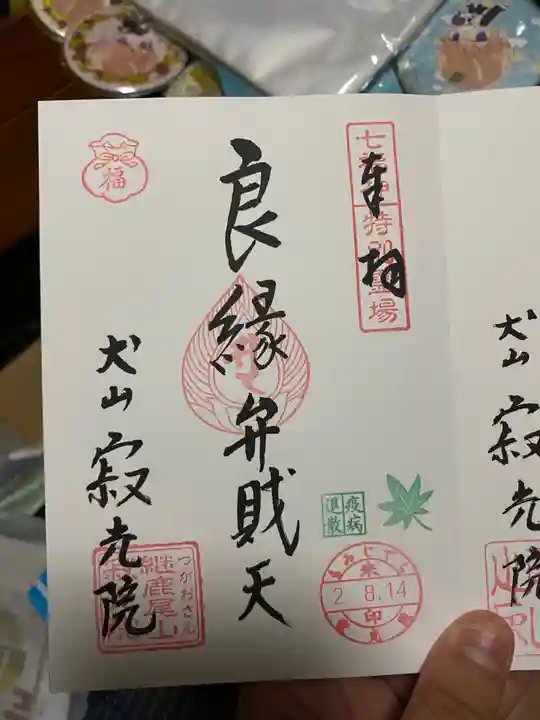 七福神特別霊場
奉拝
良縁弁財天
福
犬山
寂光院
疫病
退散
2.8.14
印
つがおさん
継鹿尾山
犬山
寂光院